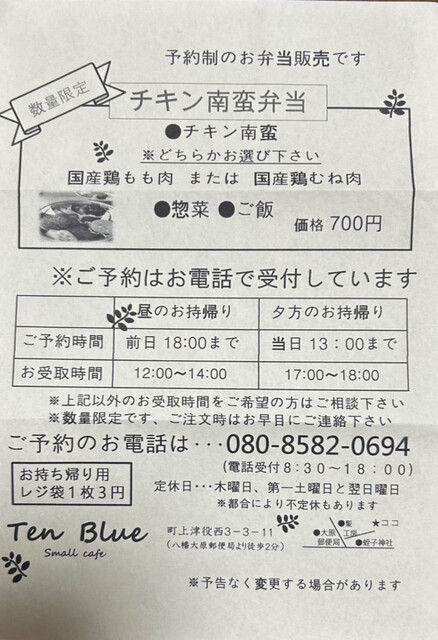 予約制のお弁当販売です
数量限定
チキン南蛮弁当
●チキン南蛮
※どちらかお選び下さい
国産鶏もも肉 または 国産鶏むね肉
●惣菜 ●ご飯 価格 700円
※ご予約はお電話で受付しています
昼のお持帰り 夕方のお持帰り
ご予約時間 前日 18:00まで 当日 13：00まで
お受取時間 12:00〜14:00 17:00〜18:00
※上記以外のお受取時間をご希望の方はご相談下さい
※数量限定です、ご注文時はお早目にご連絡下さい
ご予約のお電話は･･･080-8582-0694
(電話受付８:３０〜１８:００)
お持ち帰り用
レジ袋１枚３円
定休日･･･木曜日、第一土曜日と翌日曜日
※都合により不定休もあります
Ten Blue
Small cafe
町上津役西３−３−１１
(八幡大原郵便局より徒歩2分)
★ココ
●大原
郵便局
工房
●蛭子神社
※予告なく変更する場合があります